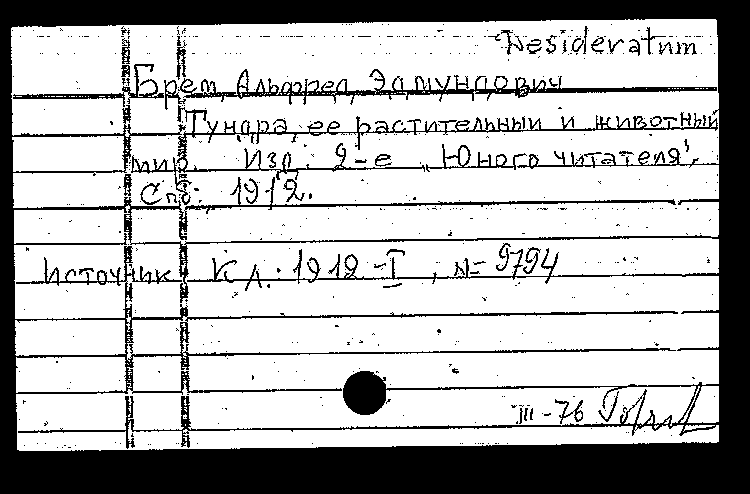 Desideratum
Брем, Альфред Эдмундович
Тундра, ее растительный и животный
мир. Изд. 2-е „Юного читателя",
Спб., 1912.
Источник: Кл. 1912-I, № 9794
III-76